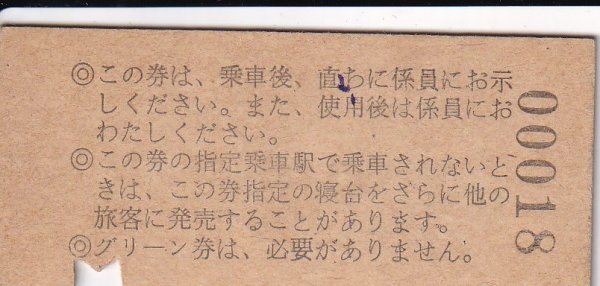 ◎この券は、乗車後、直ちに係員にお示
しください。また、使用後は係員にお
わたしください。
◎この券の指定乗車駅で乗車されないと
きは、この券指定の寝台をさらに他の
旅客に発売することがあります。
◎グリーン券は、必要がありません。
00018